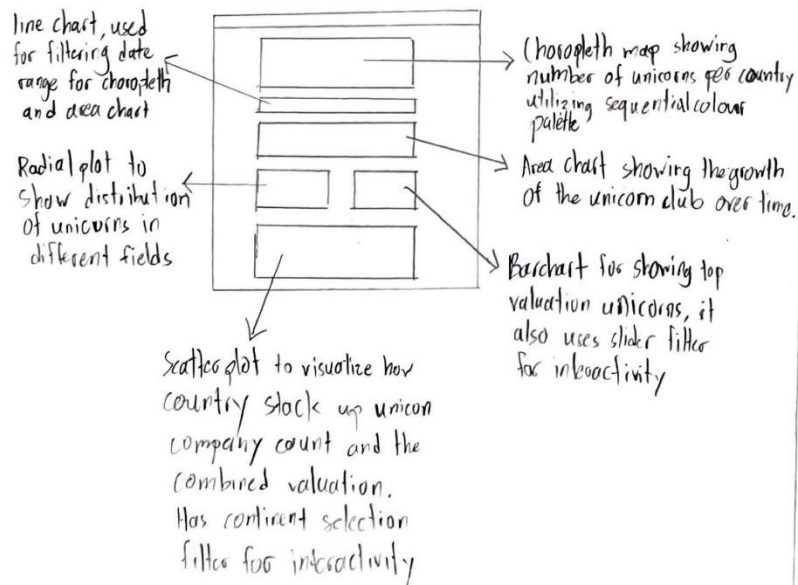 line chart, used
for filtering date
range for choropleth
and area chart
Radial plot to
show distribution
of unicorns in
different fields
Choropleth map showing
number of unicorns per country
utilizing sequential colour
palette
Area chart showing the growth
of the unicorn club over time.
Barchart for showing top
valuation unicorns, it
also uses slider filter
for interactivity
Scatter plot to visualize how
country stack up unicon
company count and the
combined valuation.
Has continent selection
filter for interactivity